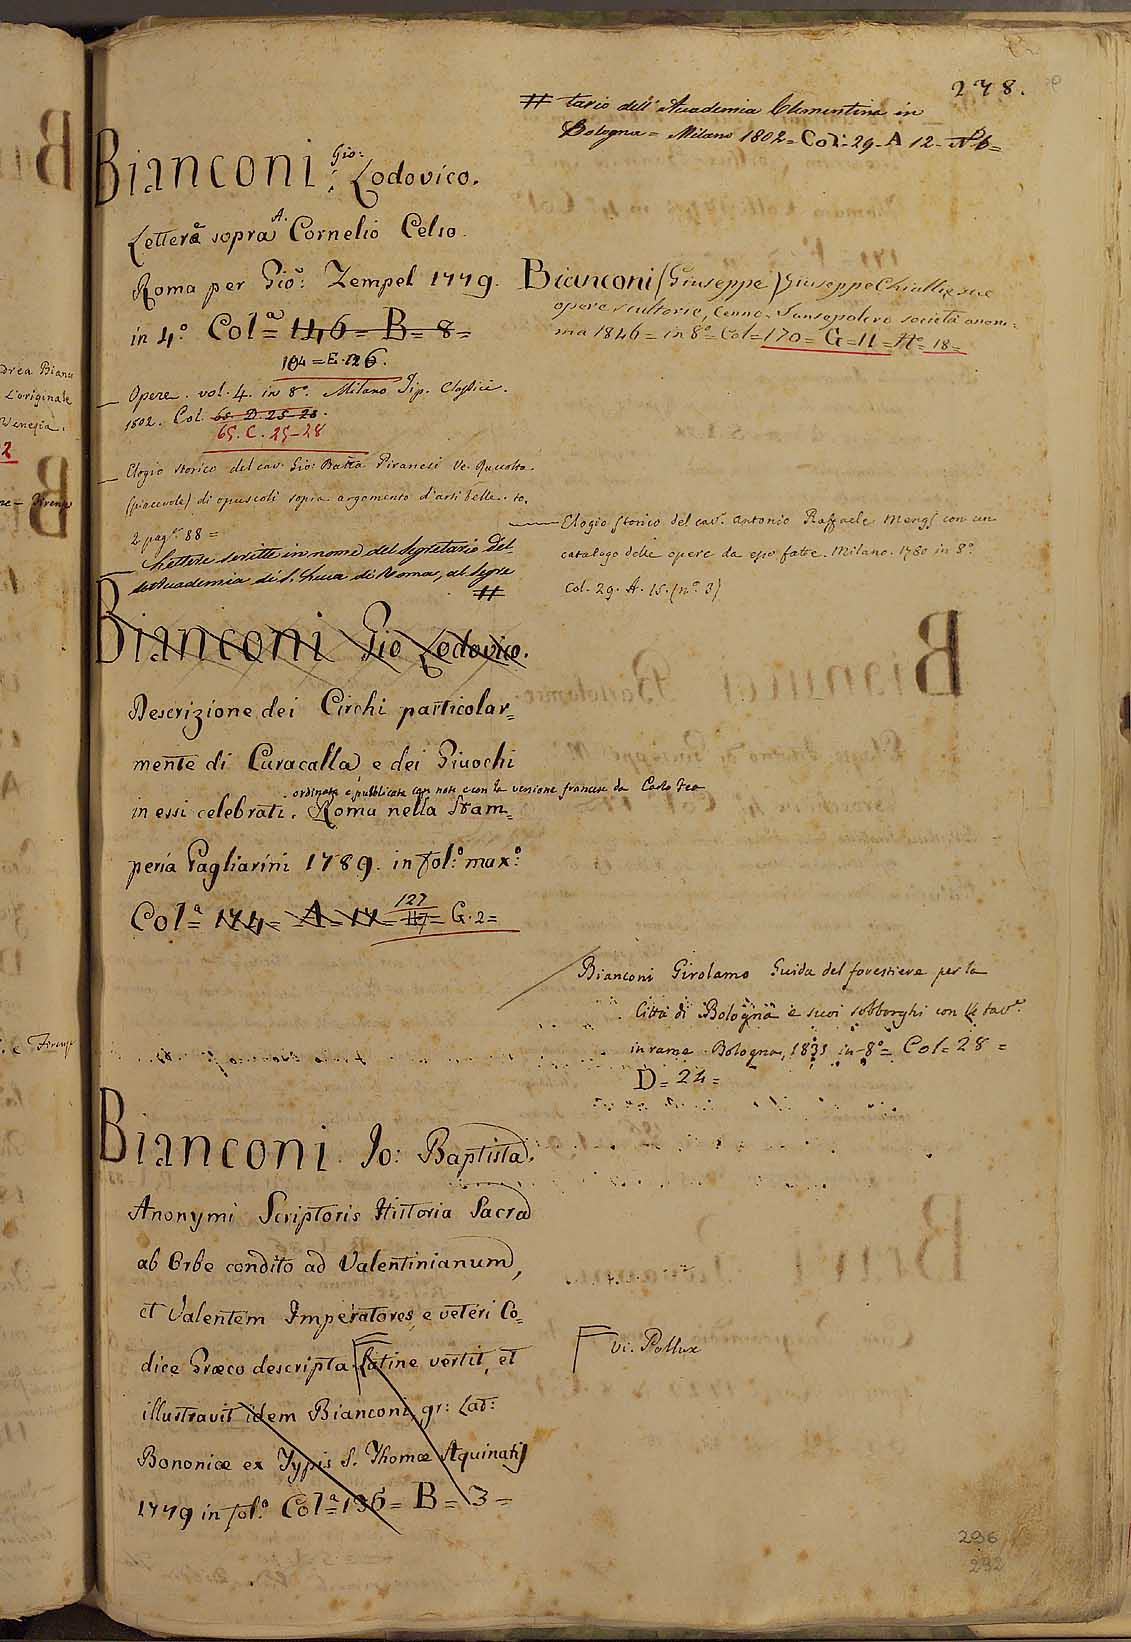 278.
# tario dell'Academia Clementina in
Bologna = Milano 1802 = Col: 29 - A 12 - N. 6 =
Bianconi Gio: Lodovico.
Lettere sopra A. Cornelio Celso.
Roma per Gio: Zempel 1779.
in 4.º Colª = 146 = B = 8 =
104 = E. 126.
Opere. vol. 4. in 8º. Milano Tip. Classici.
1802. Col. 65. D. 25-28.
65. C. 25-28
Elogio storico del cav. Gio: Batta Piranesi Ve. Raccolta
(piacevole) di opuscoli sopra argomento d'arti belle. to.
2 pag. 88 =
Lettere scritte in nome del Segretario del
Academia di S. Luca di Roma, al Segre
#
Bianconi (Giuseppe) Giuseppe Chialli e sue
opere scultorie, Cenno. Sansepolcro società anoni:
ma 1846 = in 8º = Col = 170 = G = 11 = Nº 18 =
Elogio storico del cav. Antonio Raffaele Mengs con un
catalogo delle opere da esso fatte. Milano. 1780 in 8º.
Col. 29. A. 15. (nº 3)
Bianconi Gio Lodovico.
Descrizione dei Circhi particolar=
mente di Caracalla, e dei Giuochi
ordinata e pubblicata con note e con la versione francese da Carlo Fea
in essi celebrati. Roma nella Stam=
peria Pagliarini 1789. in fol.º max.º
Colª = 174 = A = 17 = 127 = G. 2 =
Bianconi Girolamo Guida del forestiere per la
Città di Bologna e suoi sobborghi con 14 tav.
in rame. Bologna, 1835 in-8º = Col = 28 =
D = 24 =
Bianconi Jo: Baptista.
Anonymi Scriptoris Historia Sacra
ab Orbe condito ad Valentinianum,
et Valentem Imperatores, e veteri Co=
dice Græco descripta. Latine vertit, et
illustravit idem Bianconi, gr: Lat:
Bononiæ ex Typis S. Thomæ Aquinatis
1779 in fol.º Colª = 196 = B = 3 =
vi. Pollux
296
292